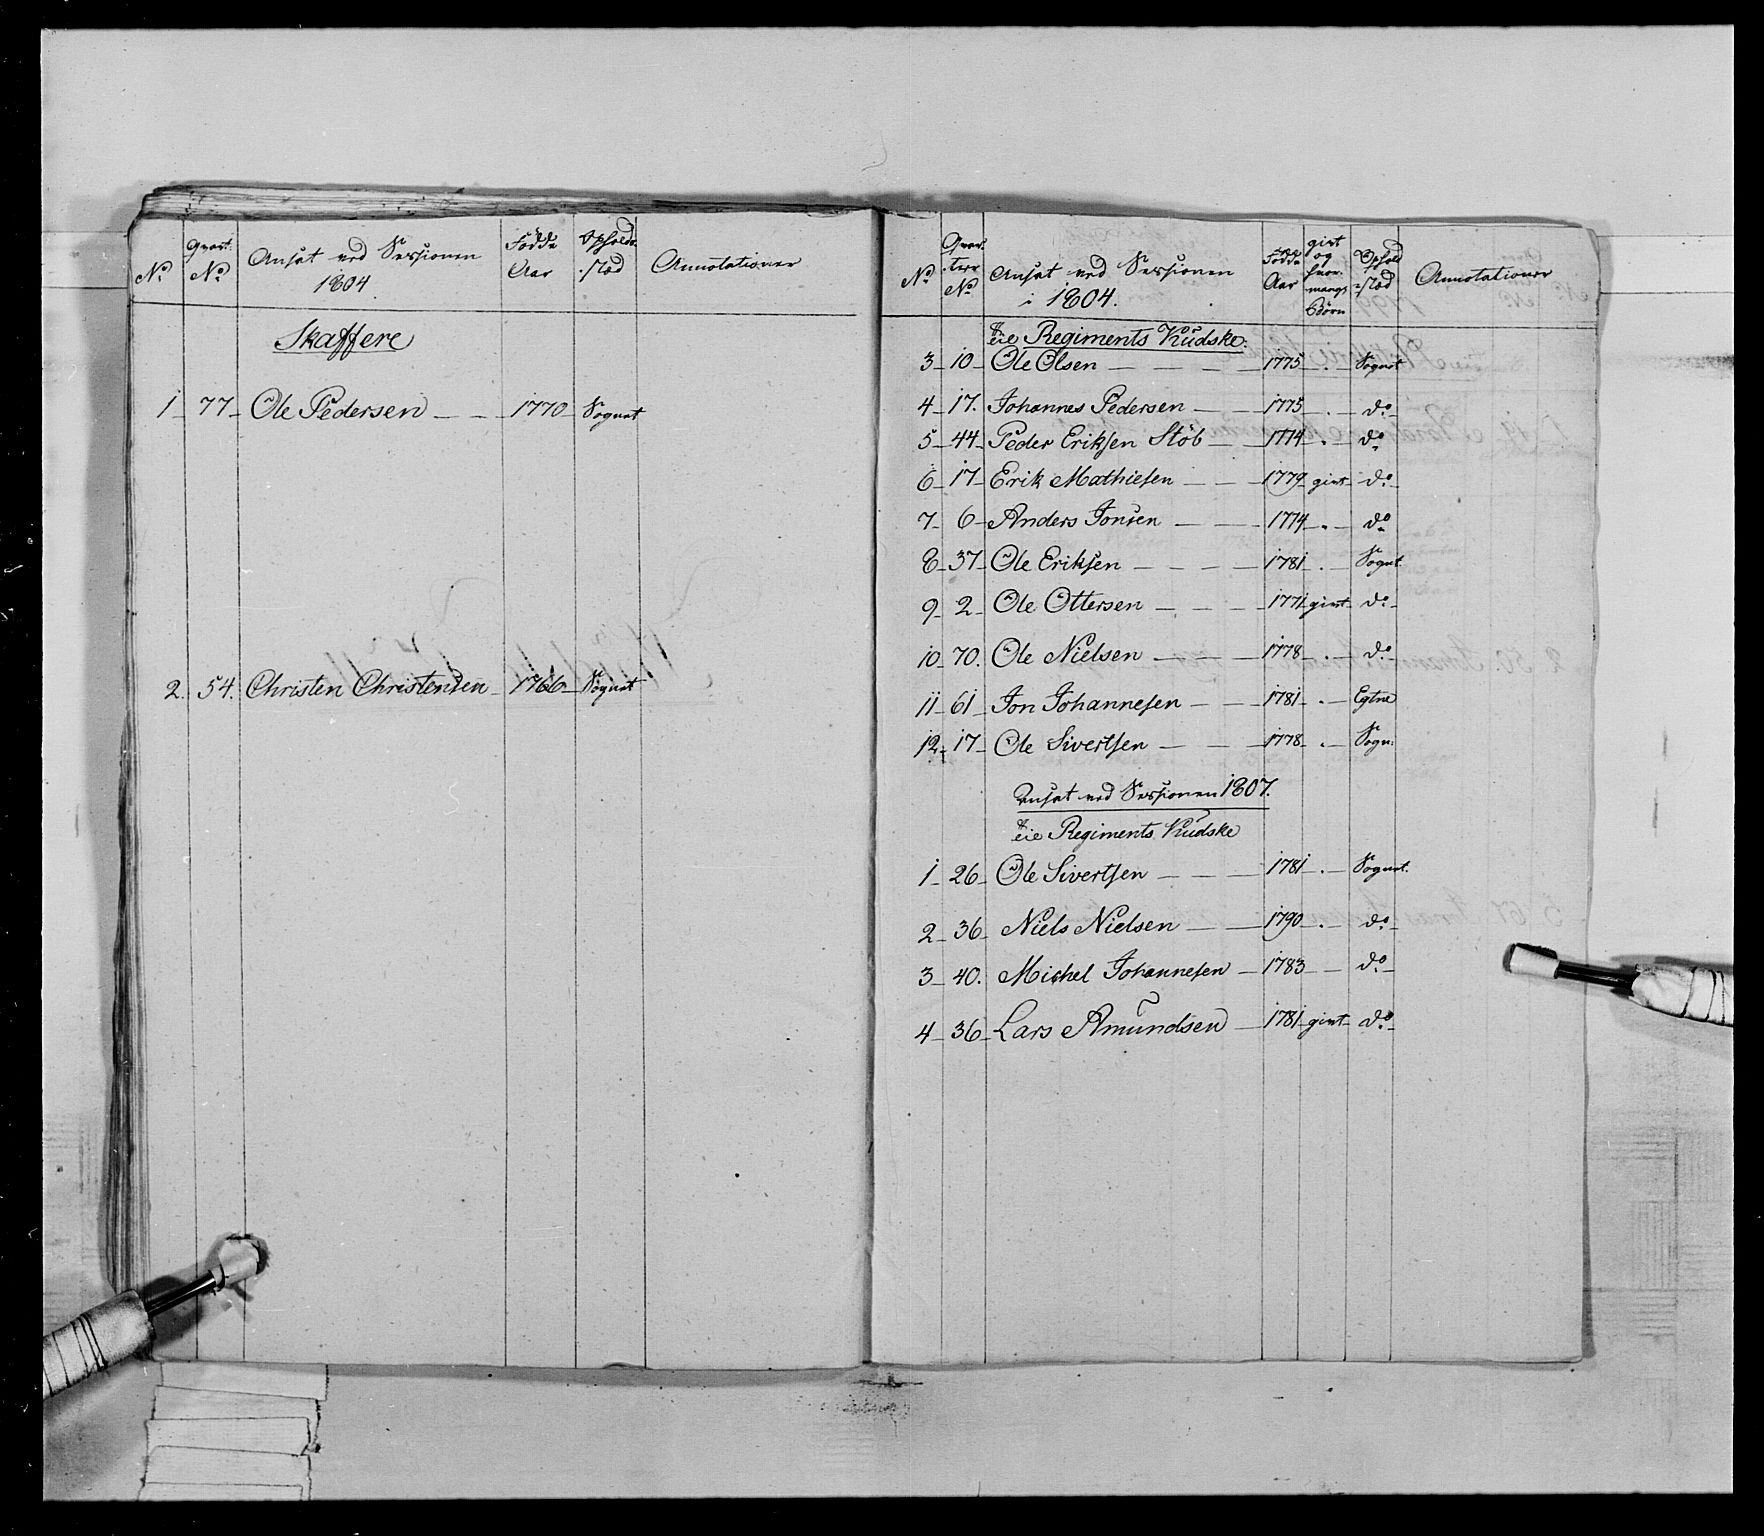 No
Qvart: No
Ansat ved Sessionen 1804
Födde Aar
Opholds Stæd
Annotationer
Skaffere
1 77 Ole Pedersen 1770 Sognet
2. 54. Christen Christensen 1766 Sognet
No
Qvarteer No
Ansat ved Sessionen i 1804.
Födde Aar
givt og hvor mange Börn
Ophold Stæd
Annotationer
Regiments Kudske:
3 10 Ole Olsen 1775 Sognet
4 17. Johannes Pedersen 1775 do
5 44 Peder Eriksen Stöb 1774 do
6 17 Erik Mathiesen 1779 givt do
7 6 Anders Jonsen 1774 do
8 37 Ole Eriksen 1781 Sognet
9 2 Ole Ottersen 1771 givt do
10 70. Ole Nielsen 1778 do
11 61 Jon Johannesen 1781 Egtne
12 17 Ole Sivertsen 1778 Sogn:
Ansat ved Sessionen 1807.
Regiments Kudske
1 26 Ole Sivertsen 1781 Sognet.
2 36 Niels Nielsen 1790 do
3 40. Michel Johannesen 1783 do
4 36 Lars Amundsen 1781 givt do